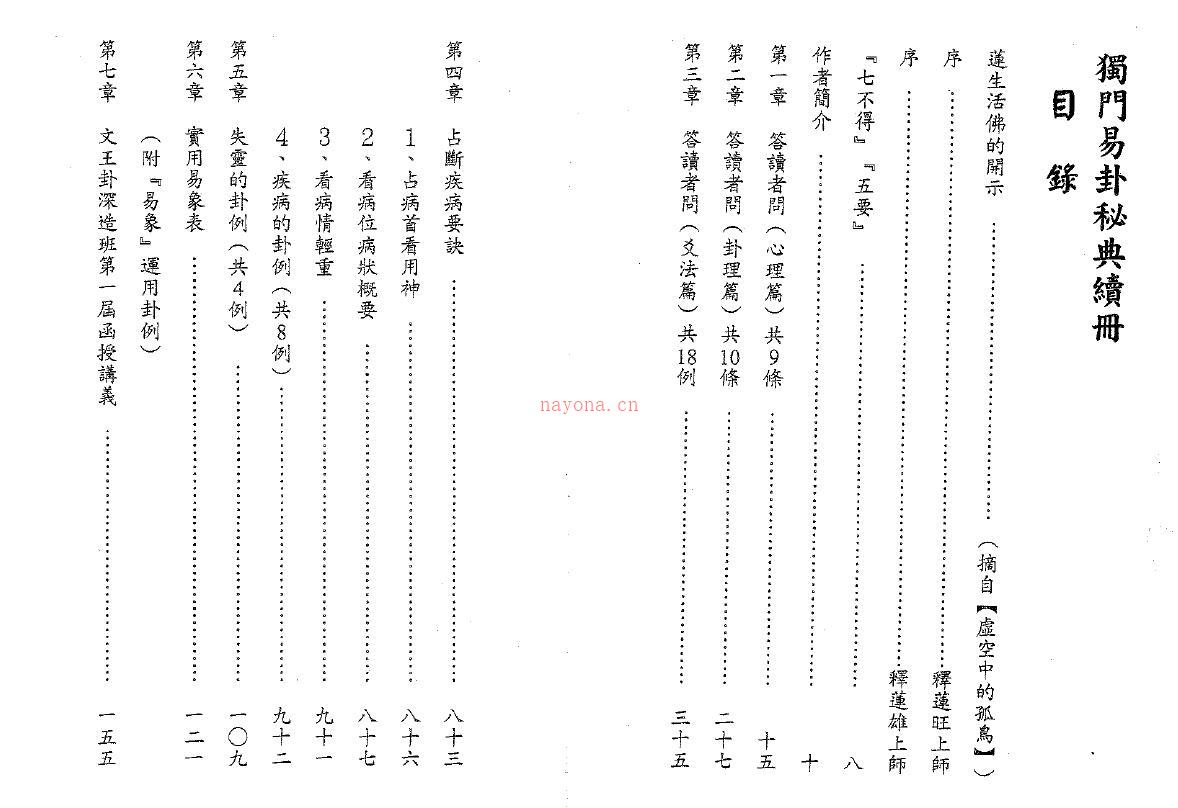 獨門易卦秘典續冊
目錄
蓮生活佛的開示……(摘自【虛空中的孤鳥】)
序……釋蓮旺上師
序……釋蓮雄上師
『七不得』『五要』……八
作者簡介……十
第一章 答讀者問(心理篇)共9條……十五
第二章 答讀者問(卦理篇)共10條……二十七
第三章 答讀者問(爻法篇)共18例……三十五
第四章 占斷疾病要訣……八十三
1、占病首看用神……八十六
2、看病位病狀概要……八十七
3、看病情輕重……九十一
4、疾病的卦例(共8例)……九十二
第五章 失靈的卦例(共4例)……一〇九
第六章 實用易象表……一二一
(附『易象』運用卦例)
第七章 文王卦深造班第一屆函授講義……一五五
nayona.cn